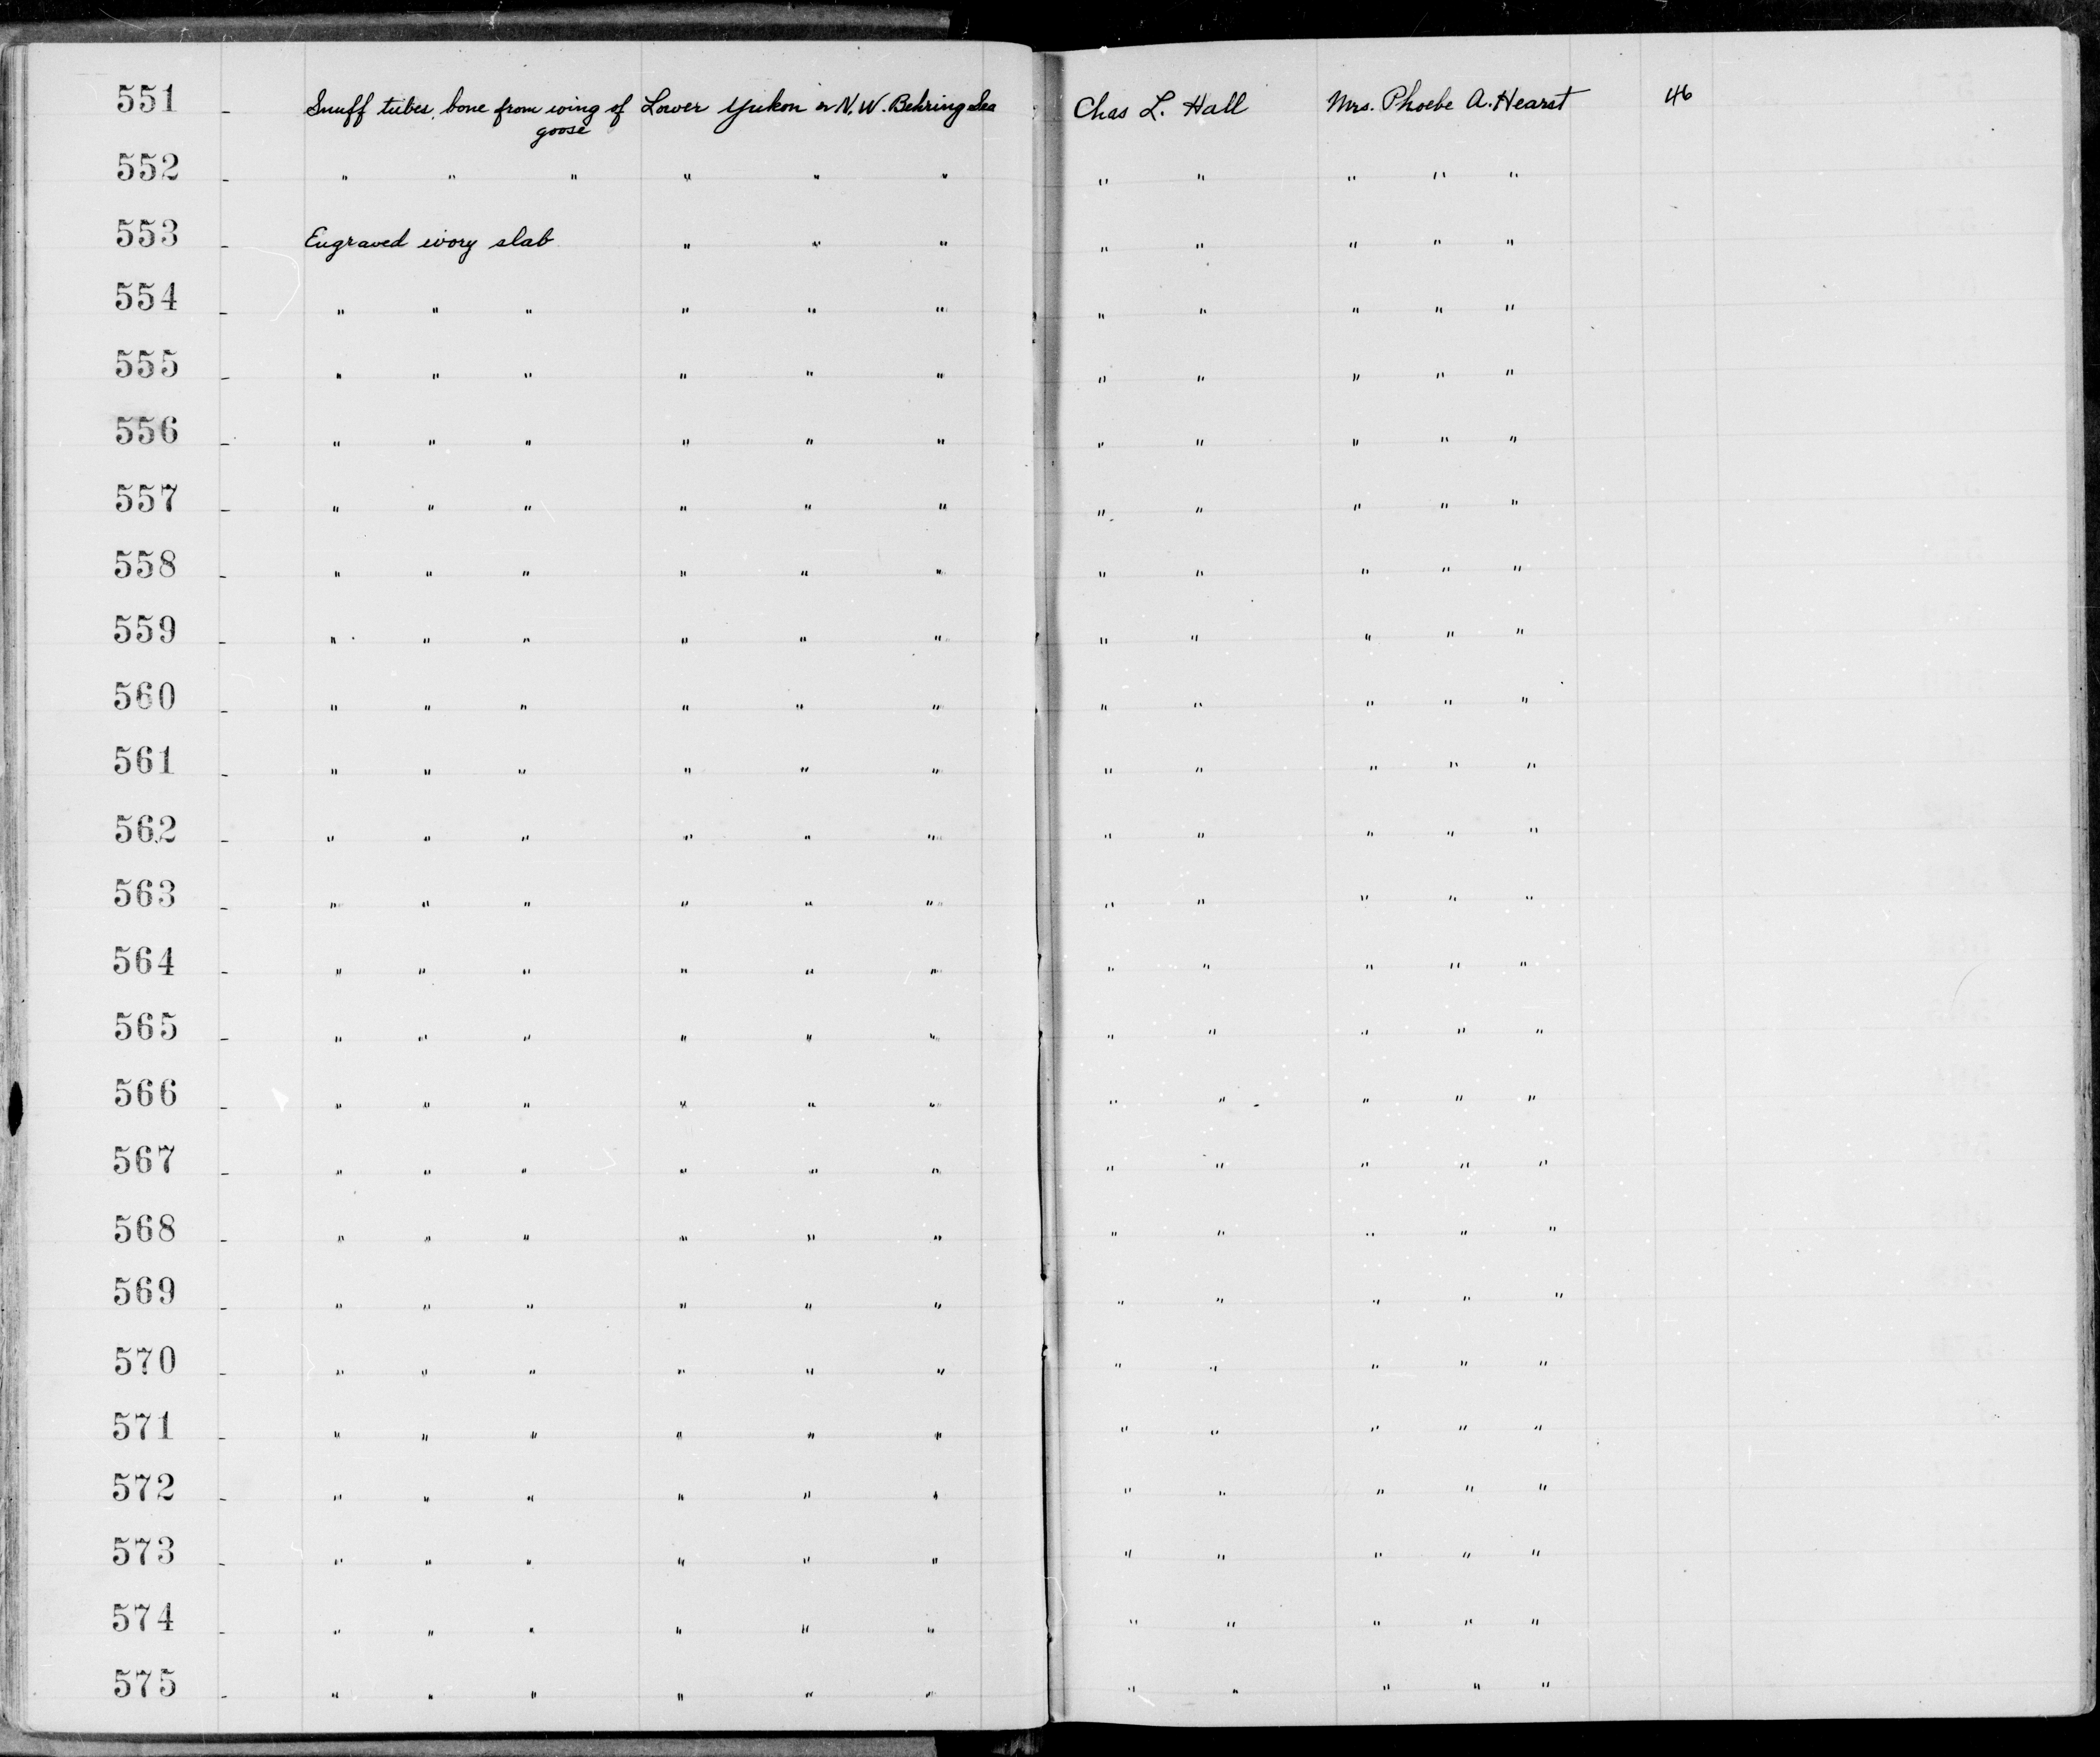 551 - Snuff tubes, bone from wing of Lower Yukon or N.W. Behring Sea Chas L. Hall Mrs. Phoebe A. Hearst 46
goose
552 - " " " " " " " " " " "
553 - Engraved ivory slab " " " " " " " "
554 - " " " " " " " " " " "
555 - " " " " " " " " " " "
556 - " " " " " " " " " " "
557 - " " " " " " " " " " "
558 - " " " " " " " " " " "
559 - " " " " " " " " " " "
560 - " " " " " " " " " " "
561 - " " " " " " " " " " "
562 - " " " " " " " " " " "
563 - " " " " " " " " " " "
564 - " " " " " " " " " " "
565 - " " " " " " " " " " "
566 - " " " " " " " " " " "
567 - " " " " " " " " " " "
568 - " " " " " " " " " " "
569 - " " " " " " " " " " "
570 - " " " " " " " " " " "
571 - " " " " " " " " " " "
572 - " " " " " " " " " " "
573 - " " " " " " " " " " "
574 - " " " " " " " " " " "
575 - " " " " " " " " " " "